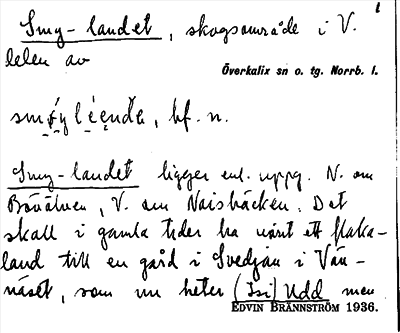 Smy-landet, skogsområde i V.
delen av
Överkalix sn o. tg. Norrb. l.
bf. n.
Smy-landet ligger enl. uppg. N. om
V. om Naisbäcken. Det
skall i gamla tider ha varit ett flaka-
land till en gård i Svedjan i Vän-
näset, som nu heter (Isi) Udd men
EDVIN BRÄNNSTRÖM 1936.